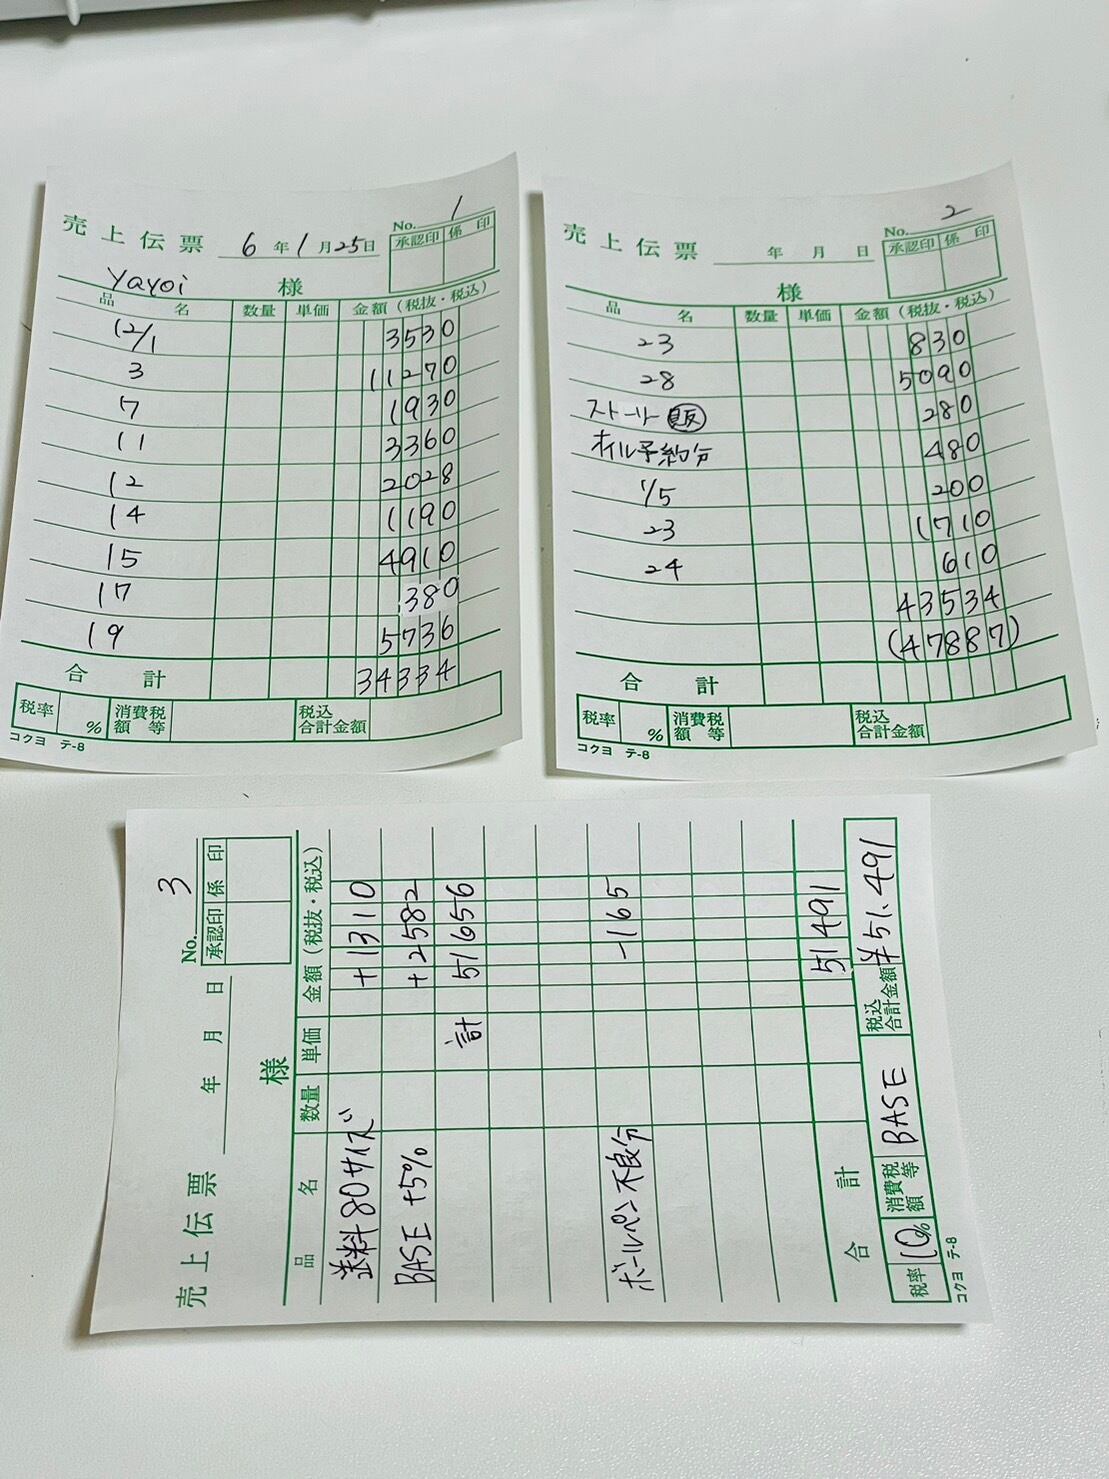 売上伝票 No. 1
6年1月25日 承認印 係印
Yayoi 様
品名 数量 単価 金額(税抜・税込)
12/1 3530
3 11270
7 1930
11 3360
12 2028
14 1190
15 4910
17 380
19 5736
合計 34334
税率 % 消費税額等 税込合計金額
コクヨ テ-8
売上伝票 No. 2
年 月 日 承認印 係印
様
品名 数量 単価 金額(税抜・税込)
23 830
28 5090
ストーリー 販 280
オイル予約分 480
1/5 200
23 1710
24 610
43534
(47887)
合計
税率 % 消費税額等 税込合計金額
コクヨ テ-8
売上伝票 No. 3
年 月 日 承認印 係印
様
品名 数量 単価 金額(税抜・税込)
送料80サイズ +1310
BASE +5% +2582
計 51656
ボールペン不良分 -165
合計 51491
税率 10% 消費税額等 BASE 税込合計金額 ¥51.491
コクヨ テ-8